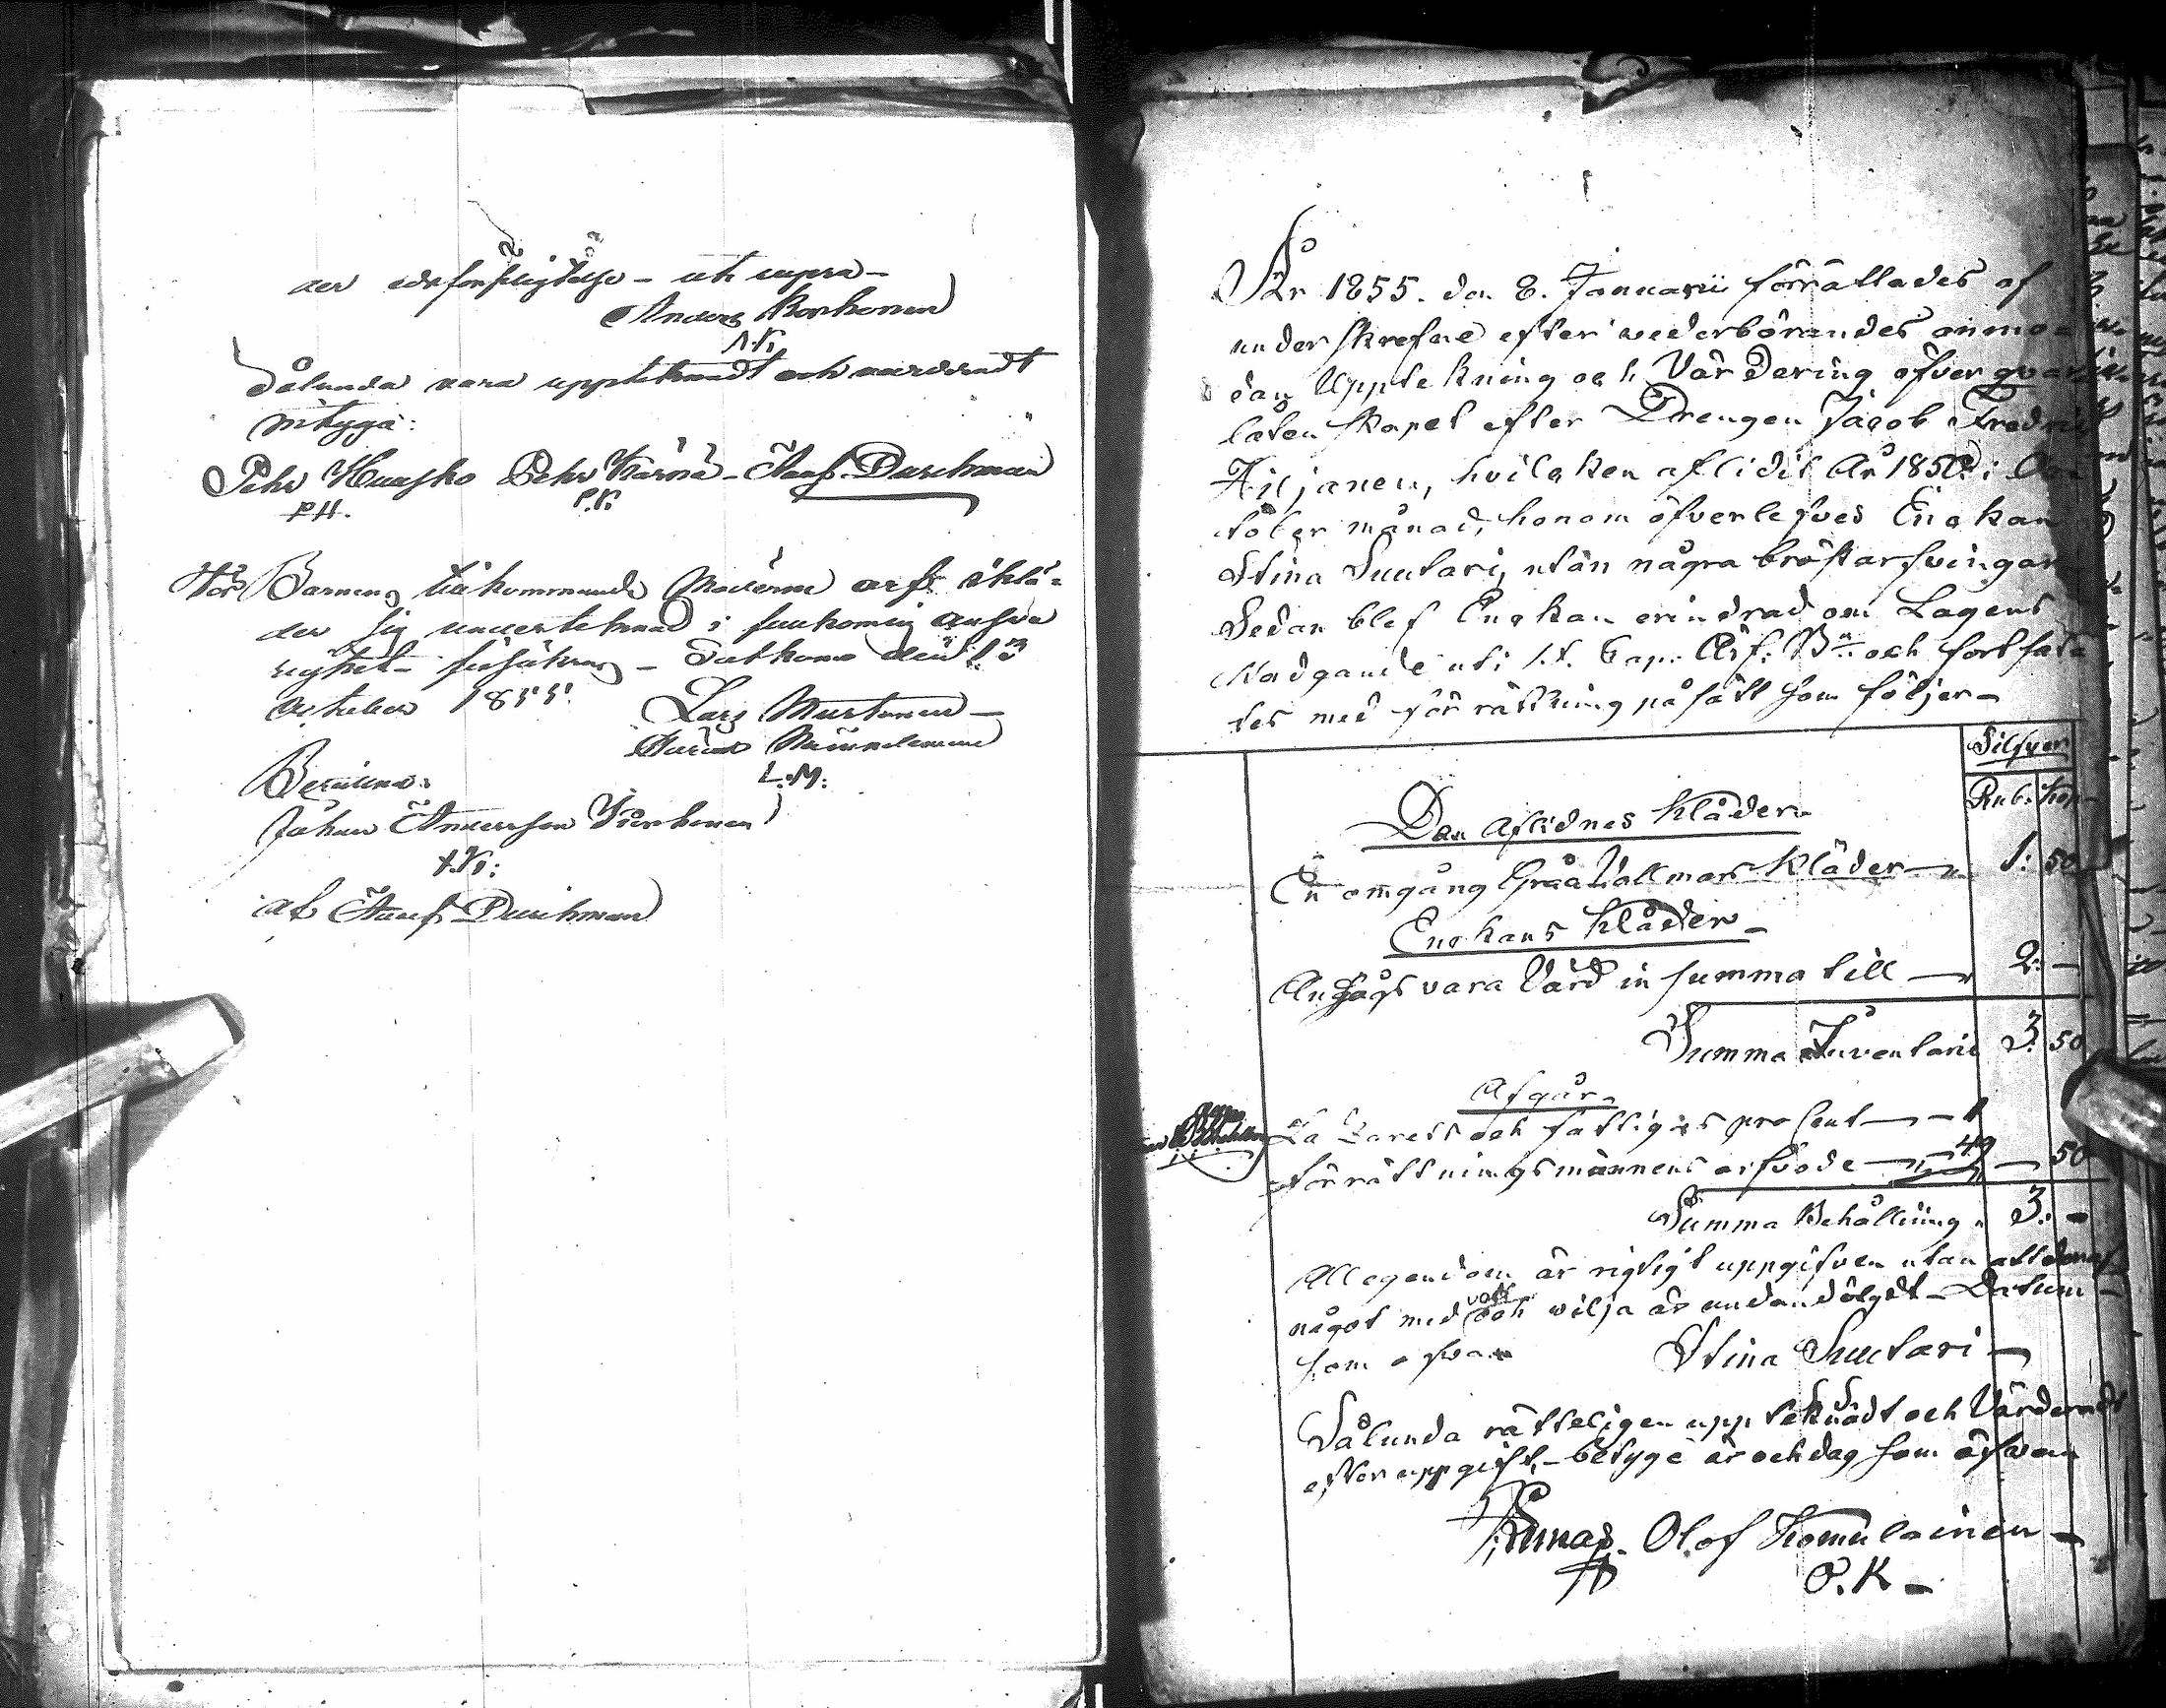 der edsförpligtelse - ut supra -
Anders Korhonen
A.K.
Sålunda vara upptecknadt och värderadt
intyga:
Pehr Huusko Pehr Kärnä - Staf. Durchman
P.H. P.K.
För Barnens tillkommande Möderne arf, iklä-
der sig undertecknad i framtiden ansva
righet - försäkras - den 13
October 1855.
Lars Mustonen -
L.M.
Bevittna:
Johan Andersson Korhonen
J.K.
af Staf. Durchman
År 1855. den 8. Januarii förrättades af
underskrefne efter wederbörandes anmo-
dan Uppteckning och Värdering öfver qvar-
låtenskapet efter Drengen Jacob Fredrik
Kiljanen, hvilcken aflidit År 1850 i Oc
tober månad, honom öfverlefves Enckan
Stina Suutari, utan några bröstarfvingar
Sedan blef Enckan erindrad om Lagens
stadgande uti 1.§. 6 Cap. Ärf. Bn. och fortsat-
tes med förrättning på sätt som följer -
Silfver
Rub: Kop
Den Aflidnes kläder
En omgång Grå Vallmars kläder — 1: 50
Enckans kläder -
Ansågs vara värd in summa till — 2: —
Summa Inventarii 3: 50
Afgår
La Zarett och fattiges pro Cent — 1
förrättningsmännens arfvode — 49 — 50
Summa Behållning 3: -
All egendom är rigtigt uppgifven utan att deraf
något med vett och wilja är undandölgdt - Datum
som ofvan Stina Suutari -
Sålunda rätteligen upptecknadt och Värderadt
efter uppgift, - betyge år och dag som ofvan
Olof Komulainen -
O.K -